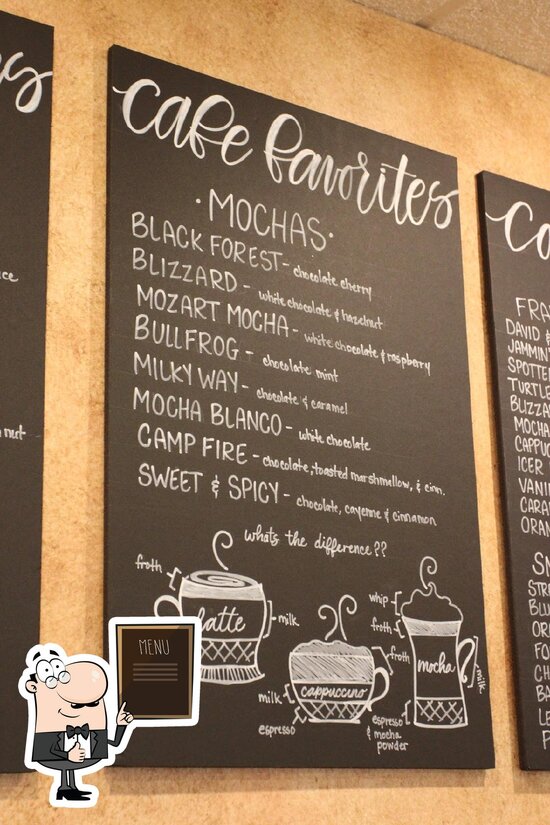 cafe favorites
·MOCHAS·
BLACK FOREST - chocolate cherry
BLIZZARD - white chocolate & hazelnut
MOZART MOCHA - white chocolate & raspberry
BULLFROG - chocolate mint
MILKY WAY - chocolate & caramel
MOCHA BLANCO - white chocolate
CAMP FIRE - chocolate, toasted marshmallow, & cinn.
SWEET & SPICY - chocolate, cayenne & cinnamon
whats the difference??
froth
latte
milk
froth
cappuccino
milk
espresso
whip
froth
mocha
milk
espresso
& mocha
powder
MENU
nut
Co
FRA
DAVID &
JAMMIN
SPOTTE
TURTLE
BLIZZA
MOCHA
CAPPUC
ICER
VANIL
CARA
ORAN
STR
BLU